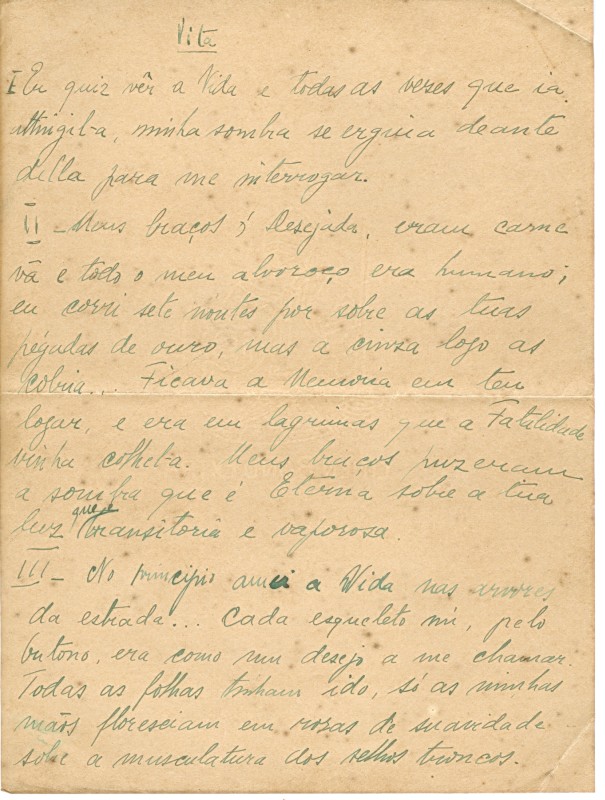 Vita
I Eu quiz vêr a Vida e todas as vezes que ia
attingil-a, minha sombra se erguia deante
della para me interrogar.
II - Meus braços, ó Desejada, eram carne
vã e todo o meu alvoroço era humano;
eu corri sete noutes por sobre as tuas
pégadas de ouro, mas a cinza logo as
cobria... Ficava a Memoria em teu
logar, e era em lagrimas que a Fatalidade
vinha colhel-a. Meus braços puzeram
a sombra que é Eterna sobre a tua
luz que é transitoria e vaporosa.
III - No principio amei a Vida nas arvores
da estrada... Cada esqueleto nú, pelo
outono, era como um desejo a me chamar.
Todas as folhas tinham ido, só as minhas
mãos floresciam em rozas de suavidade
sobre a musculatura dos velhos troncos.